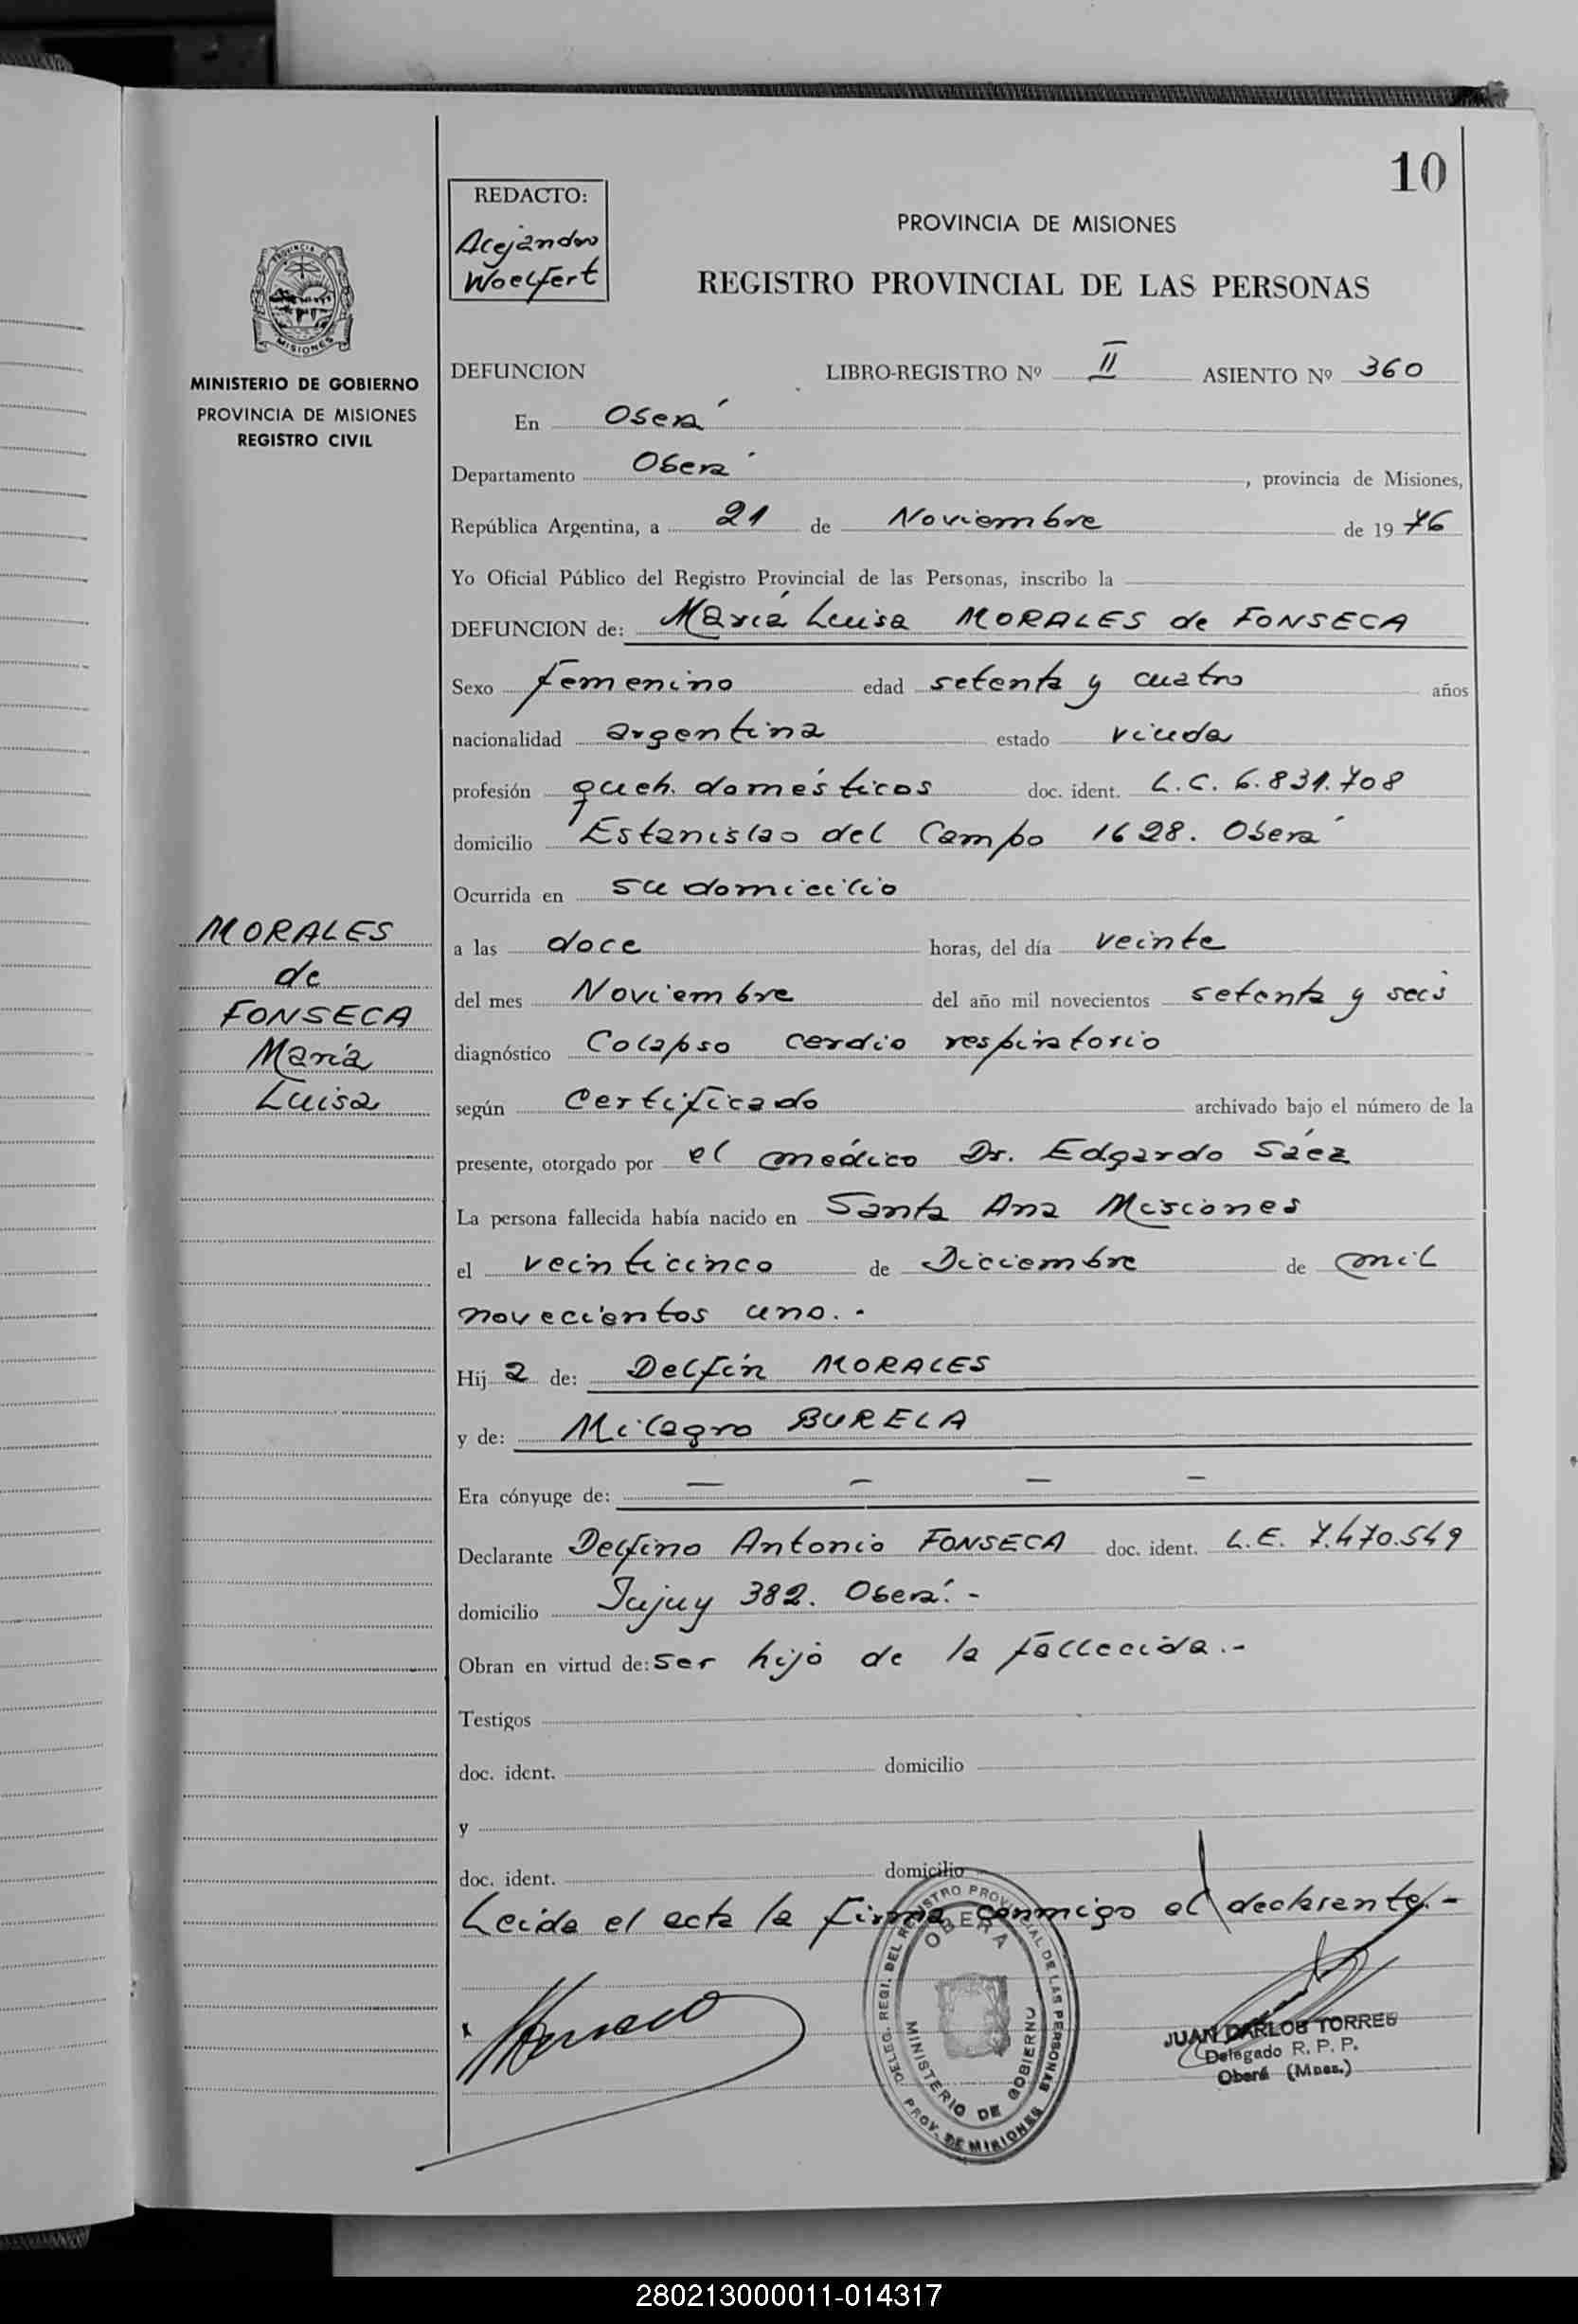 10
REDACTO:
Alejandro
Woelfert
PROVINCIA DE MISIONES
REGISTRO PROVINCIAL DE LAS PERSONAS
PROVINCIA DE
MISIONES
MINISTERIO DE GOBIERNO
PROVINCIA DE MISIONES
REGISTRO CIVIL
DEFUNCION LIBRO-REGISTRO Nº II ASIENTO Nº 360
En Oberá
Departamento Oberá, provincia de Misiones,
República Argentina, a 21 de Noviembre de 1976
Yo Oficial Público del Registro Provincial de las Personas, inscribo la
DEFUNCION de: María Luisa MORALES de FONSECA
Sexo femenino edad setenta y cuatro años
nacionalidad argentina estado viuda
profesión queh. domésticos doc. ident. L.C. 6.831.708
domicilio Estanislao del Campo 1628. Oberá
Ocurrida en su domicilio
a las doce horas, del día veinte
del mes Noviembre del año mil novecientos setenta y seis
diagnóstico Colapso cardio respiratorio
según Certificado archivado bajo el número de la
presente, otorgado por el médico Dr. Edgardo Sáez
La persona fallecida había nacido en Santa Ana Misiones
el veinticinco de Diciembre de mil
novecientos uno.-
Hija de: Delfín MORALES
y de: Milagro BURELA
Era cónyuge de: — — — —
Declarante Delfino Antonio FONSECA doc. ident. L.E. 7.470.549
domicilio Jujuy 382. Oberá.-
Obran en virtud de: ser hijo de la fallecida.-
Testigos
doc. ident. domicilio
y
doc. ident. domicilio
Leida el acta la firma conmigo el declarante.-
MORALES
de
FONSECA
María
Luisa
DELEG. REGI. DEL REGISTRO PROVINCIAL DE LAS PERSONAS
OBERA
MINISTERIO DE GOBIERNO
PROV. DE MISIONES
JUAN CARLOS TORRES
Delegado R. P. P.
Oberá (Mnes.)
280213000011-014317